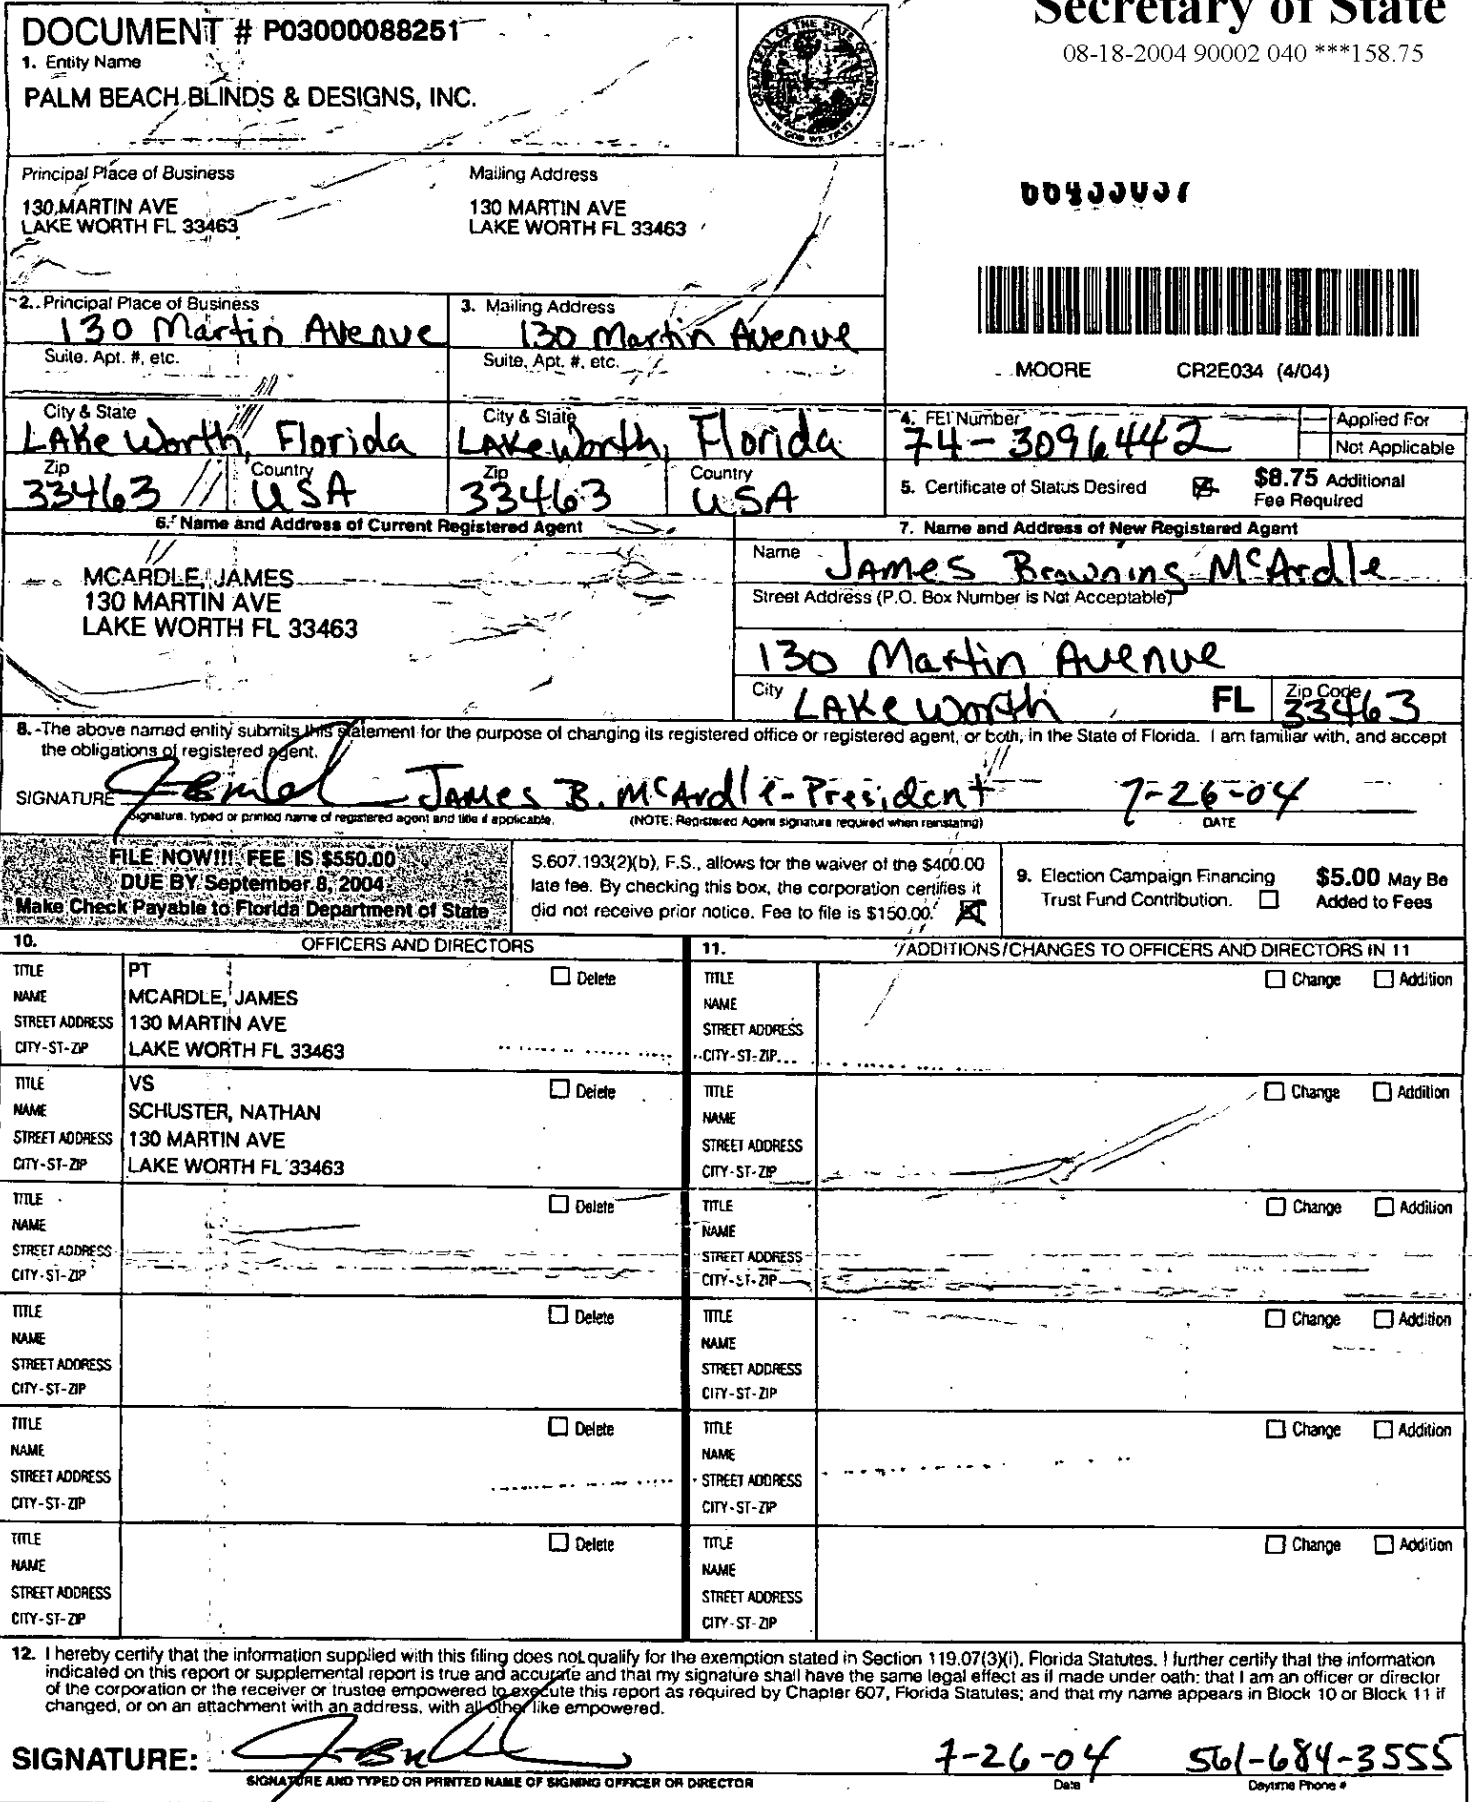 Secretary of State
08-18-2004 90002 040 ***158.75
DOCUMENT # P03000088251
1. Entity Name
PALM BEACH BLINDS & DESIGNS, INC.
GREAT SEAL OF THE STATE OF FLORIDA
IN GOD WE TRUST
Principal Place of Business
130 MARTIN AVE
LAKE WORTH FL 33463
Mailing Address
130 MARTIN AVE
LAKE WORTH FL 33463
2. Principal Place of Business
130 Martin Avenue
Suite. Apt. #, etc.
3. Mailing Address
130 Martin Avenue
Suite, Apt. #, etc.
MOORE CR2E034 (4/04)
City & State
Lake Worth, Florida
City & State
Lake Worth, Florida
Zip
33463
Country
USA
Zip
33463
Country
USA
4. FEI Number
74-3096442
Applied For
Not Applicable
5. Certificate of Status Desired
$8.75 Additional
Fee Required
6. Name and Address of Current Registered Agent
MCARDLE, JAMES
130 MARTIN AVE
LAKE WORTH FL 33463
7. Name and Address of New Registered Agent
Name James Browning McArdle
Street Address (P.O. Box Number is Not Acceptable)
130 Martin Avenue
City Lake Worth FL Zip Code 33463
8. The above named entity submits this statement for the purpose of changing its registered office or registered agent, or both, in the State of Florida. I am familiar with, and accept
the obligations of registered agent.
SIGNATURE James B. McArdle-President 7-26-04
Signature, typed or printed name of registered agent and title if applicable. (NOTE: Registered Agent signature required when reinstating) DATE
FILE NOW!!! FEE IS $550.00
DUE BY September 8, 2004
Make Check Payable to Florida Department of State
S.607.193(2)(b), F.S., allows for the waiver of the $400.00
late fee. By checking this box, the corporation certifies it
did not receive prior notice. Fee to file is $150.00.
9. Election Campaign Financing
Trust Fund Contribution.
$5.00 May Be
Added to Fees
10. OFFICERS AND DIRECTORS
TITLE PT Delete
NAME MCARDLE, JAMES
STREET ADDRESS 130 MARTIN AVE
CITY-ST-ZIP LAKE WORTH FL 33463
TITLE VS Delete
NAME SCHUSTER, NATHAN
STREET ADDRESS 130 MARTIN AVE
CITY-ST-ZIP LAKE WORTH FL 33463
TITLE Delete
NAME
STREET ADDRESS
CITY-ST-ZIP
TITLE Delete
NAME
STREET ADDRESS
CITY-ST-ZIP
TITLE Delete
NAME
STREET ADDRESS
CITY-ST-ZIP
TITLE Delete
NAME
STREET ADDRESS
CITY-ST-ZIP
11. ADDITIONS/CHANGES TO OFFICERS AND DIRECTORS IN 11
TITLE Change Addition
NAME
STREET ADDRESS
CITY-ST-ZIP
TITLE Change Addition
NAME
STREET ADDRESS
CITY-ST-ZIP
TITLE Change Addition
NAME
STREET ADDRESS
CITY-ST-ZIP
TITLE Change Addition
NAME
STREET ADDRESS
CITY-ST-ZIP
TITLE Change Addition
NAME
STREET ADDRESS
CITY-ST-ZIP
TITLE Change Addition
NAME
STREET ADDRESS
CITY-ST-ZIP
12. I hereby certify that the information supplied with this filing does not qualify for the exemption stated in Section 119.07(3)(i), Florida Statutes. I further certify that the information
indicated on this report or supplemental report is true and accurate and that my signature shall have the same legal effect as if made under oath; that I am an officer or director
of the corporation or the receiver or trustee empowered to execute this report as required by Chapter 607, Florida Statutes; and that my name appears in Block 10 or Block 11 if
changed, or on an attachment with an address, with all other like empowered.
SIGNATURE: 7-26-04 561-684-3555
SIGNATURE AND TYPED OR PRINTED NAME OF SIGNING OFFICER OR DIRECTOR Date Daytime Phone #